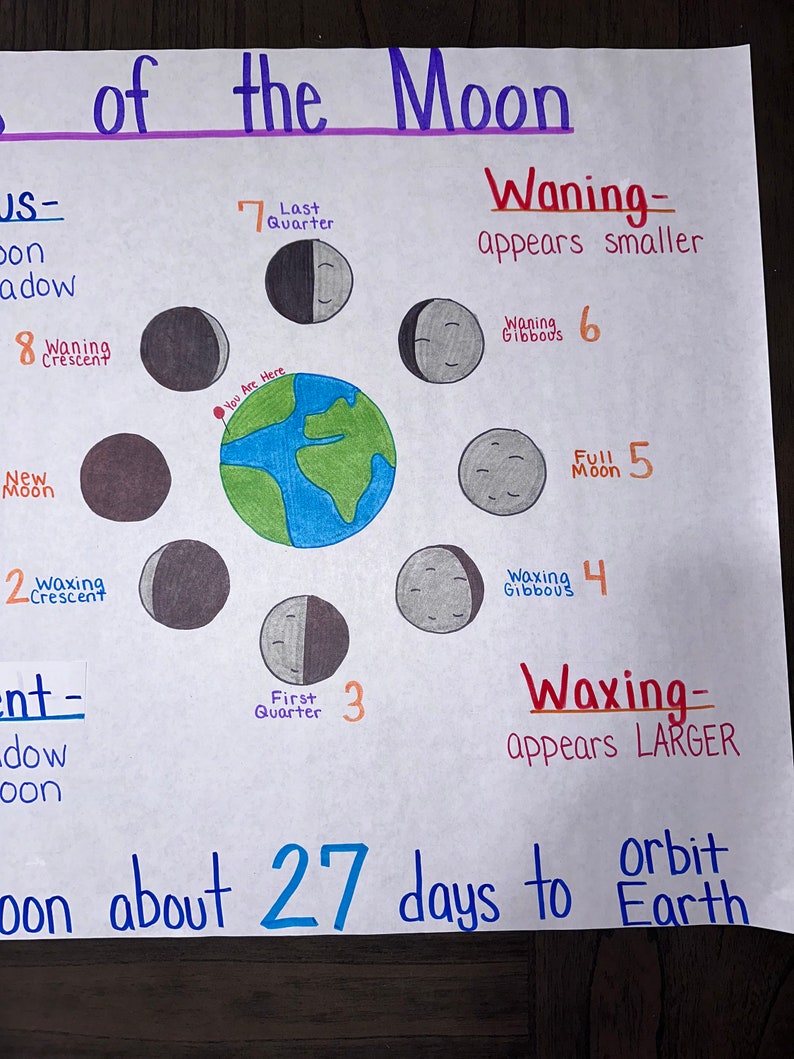 of the Moon
us-
oon
adow
7 Last
Quarter
Waning-
appears smaller
8 Waning
Crescent
Waning
Gibbous 6
You Are Here
New
Moon
Full
Moon 5
2 Waxing
Crescent
Waxing
Gibbous 4
First
Quarter 3
ent-
dow
oon
Waxing-
appears LARGER
oon about 27 days to orbit
Earth